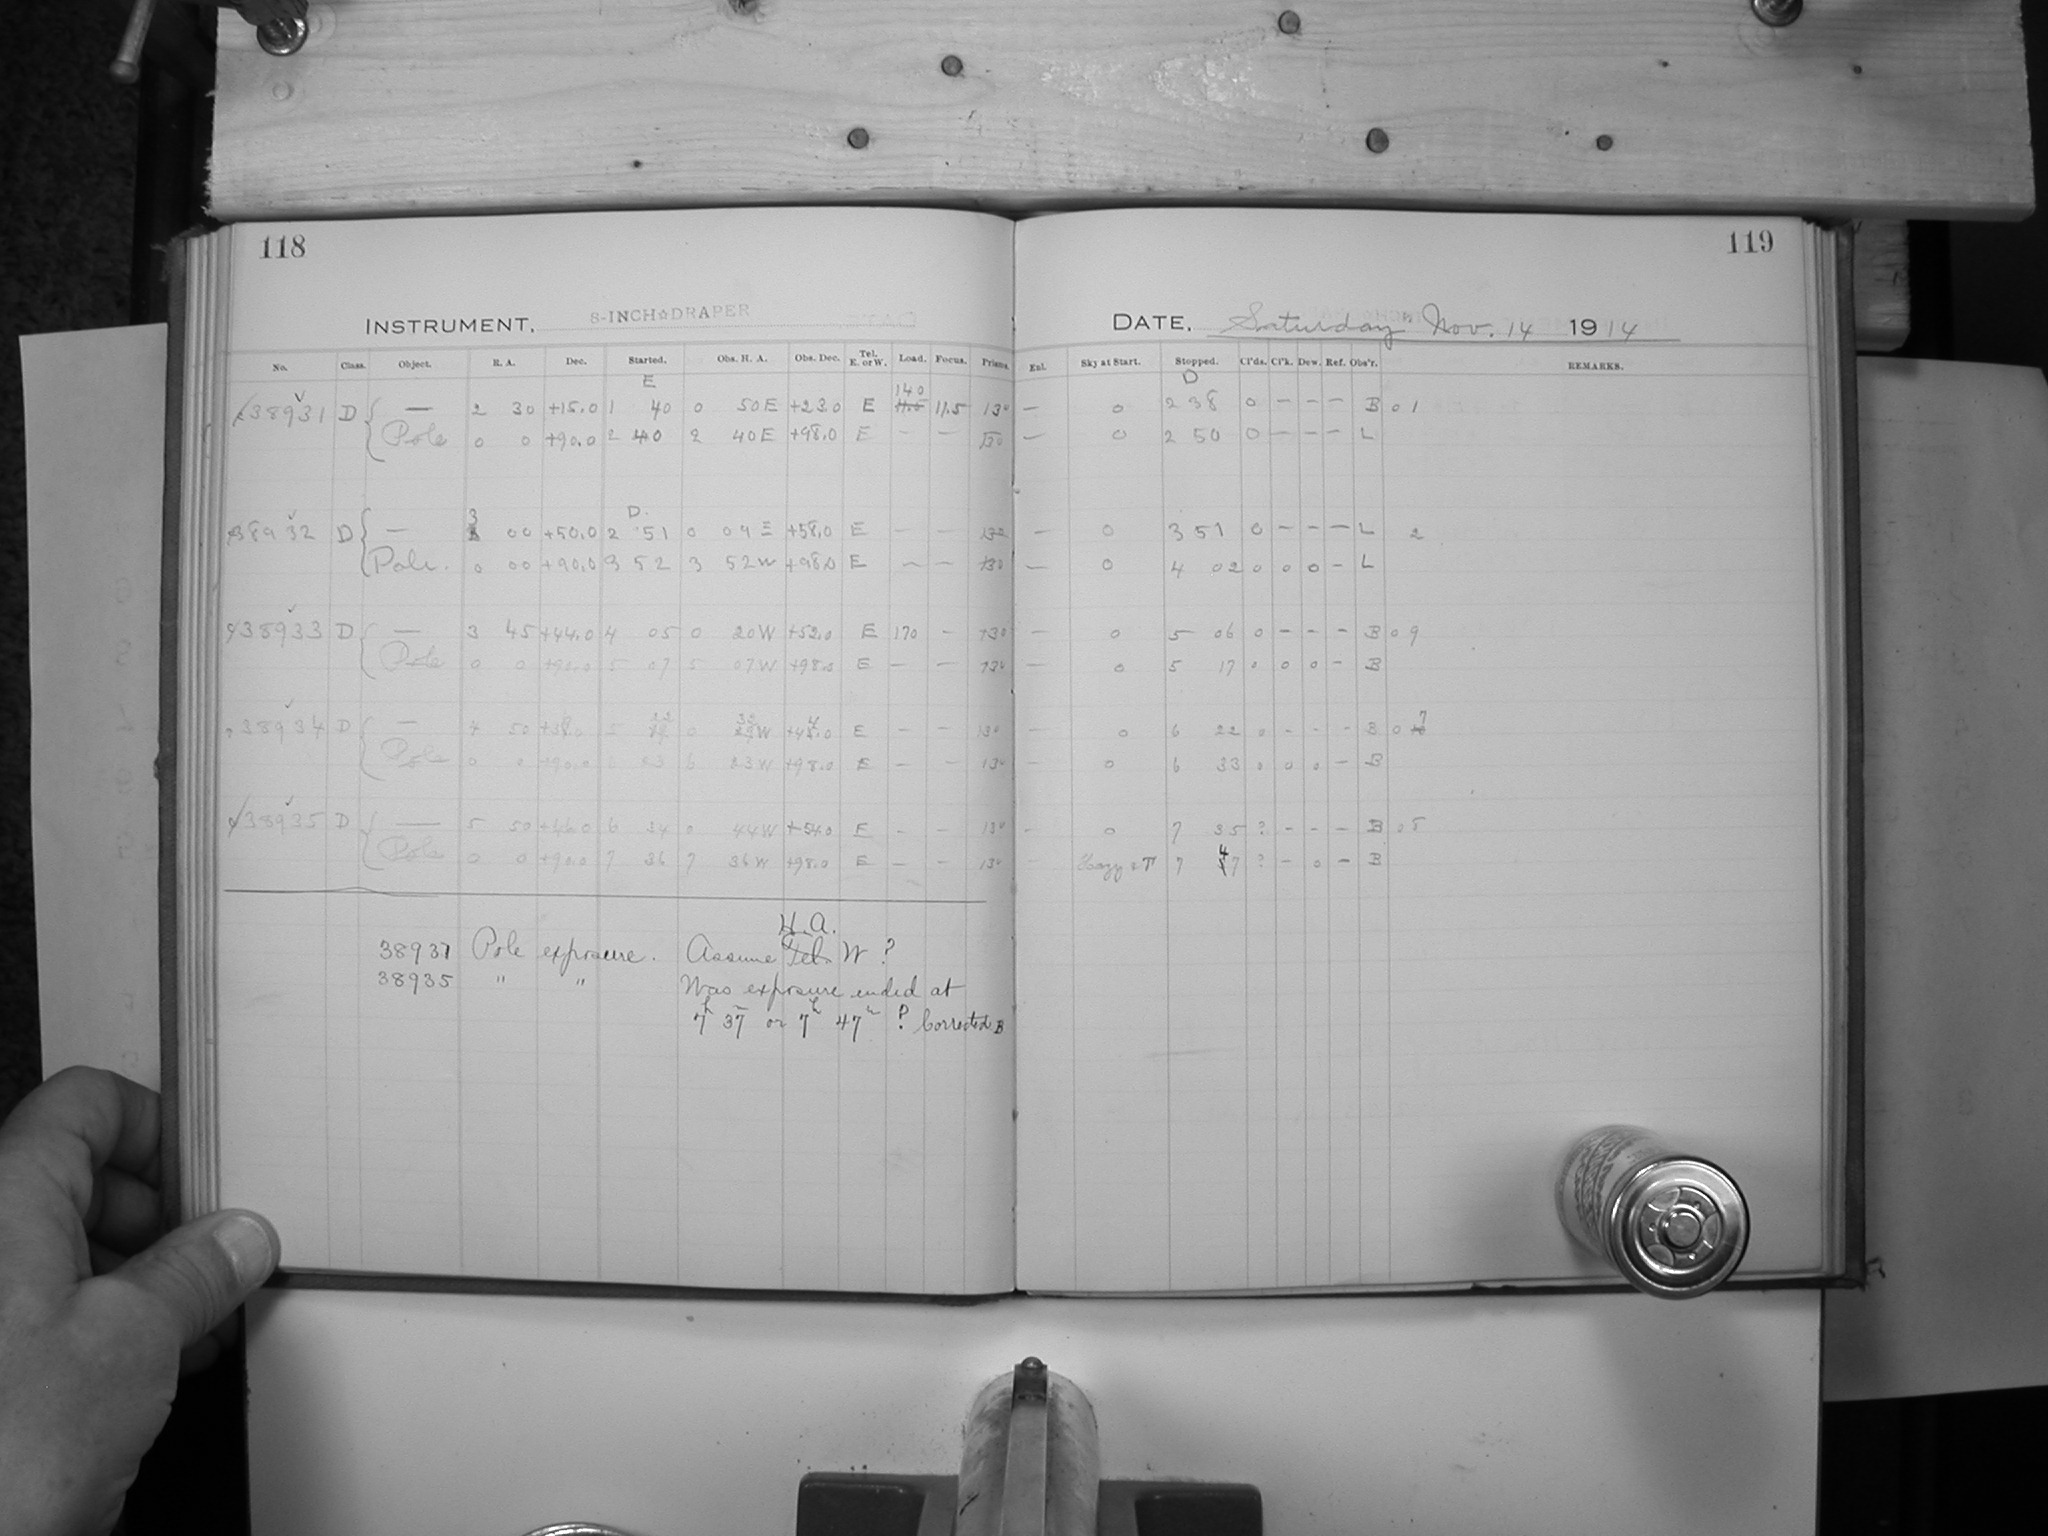 118
119
INSTRUMENT, 8-INCH☆DRAPER
DATE, Saturday Nov. 14 1914
No. Class. Object. R. A. Dec. Started. Obs. H. A. Obs. Dec. Tel. E. or W. Load. Focus. Prisms. Enl. Sky at Start. Stopped. Cl'ds. Cl'k. Dew. Ref. Obs'r. REMARKS.
E D
140
38931 D — 2 30 +15.0 1 40 0 50E +23.0 E 11.5 130 — 0 2 38 0 — — — B 0 1
Pole 0 0 +90.0 2 40 2 40E +98.0 E — — 130 — 0 2 50 0 — — — L
D.
38932 D — 3 00 +50.0 2 51 0 09E +58.0 E — — 130 — 0 3 51 0 — — — L 2
Pole. 0 00 +90.0 3 52 3 52W +98.0 E — — 130 — 0 4 02 0 0 0 — L
38933 D — 3 45 +44.0 4 05 0 20W +52.0 E 170 — 130 — 0 5 06 0 — — — B 0 9
Pole 0 0 +90.0 5 07 5 07W +98.0 E — — 130 — 0 5 17 0 0 0 — B
38934 D — 4 50 5 22 0 32W E — — 130 — 0 6 22 0 — — — B 0 7
Pole 0 0 +90.0 6 23 6 23W +98.0 E — — 130 — 0 6 33 0 0 0 — B
38935 D — 5 50 +46.0 6 34 0 44W +54.0 E — — 130 — 0 7 35 ? — — — B 0 5
Pole 0 0 +90.0 7 36 7 36W +98.0 E — — 130 — Hazy 7 47 ? — 0 — B
H.A.
38931 Pole exposure. Assume Tel. W ?
38935 " " Was exposure ended at
7h 37m or 7h 47m ? Corrected B